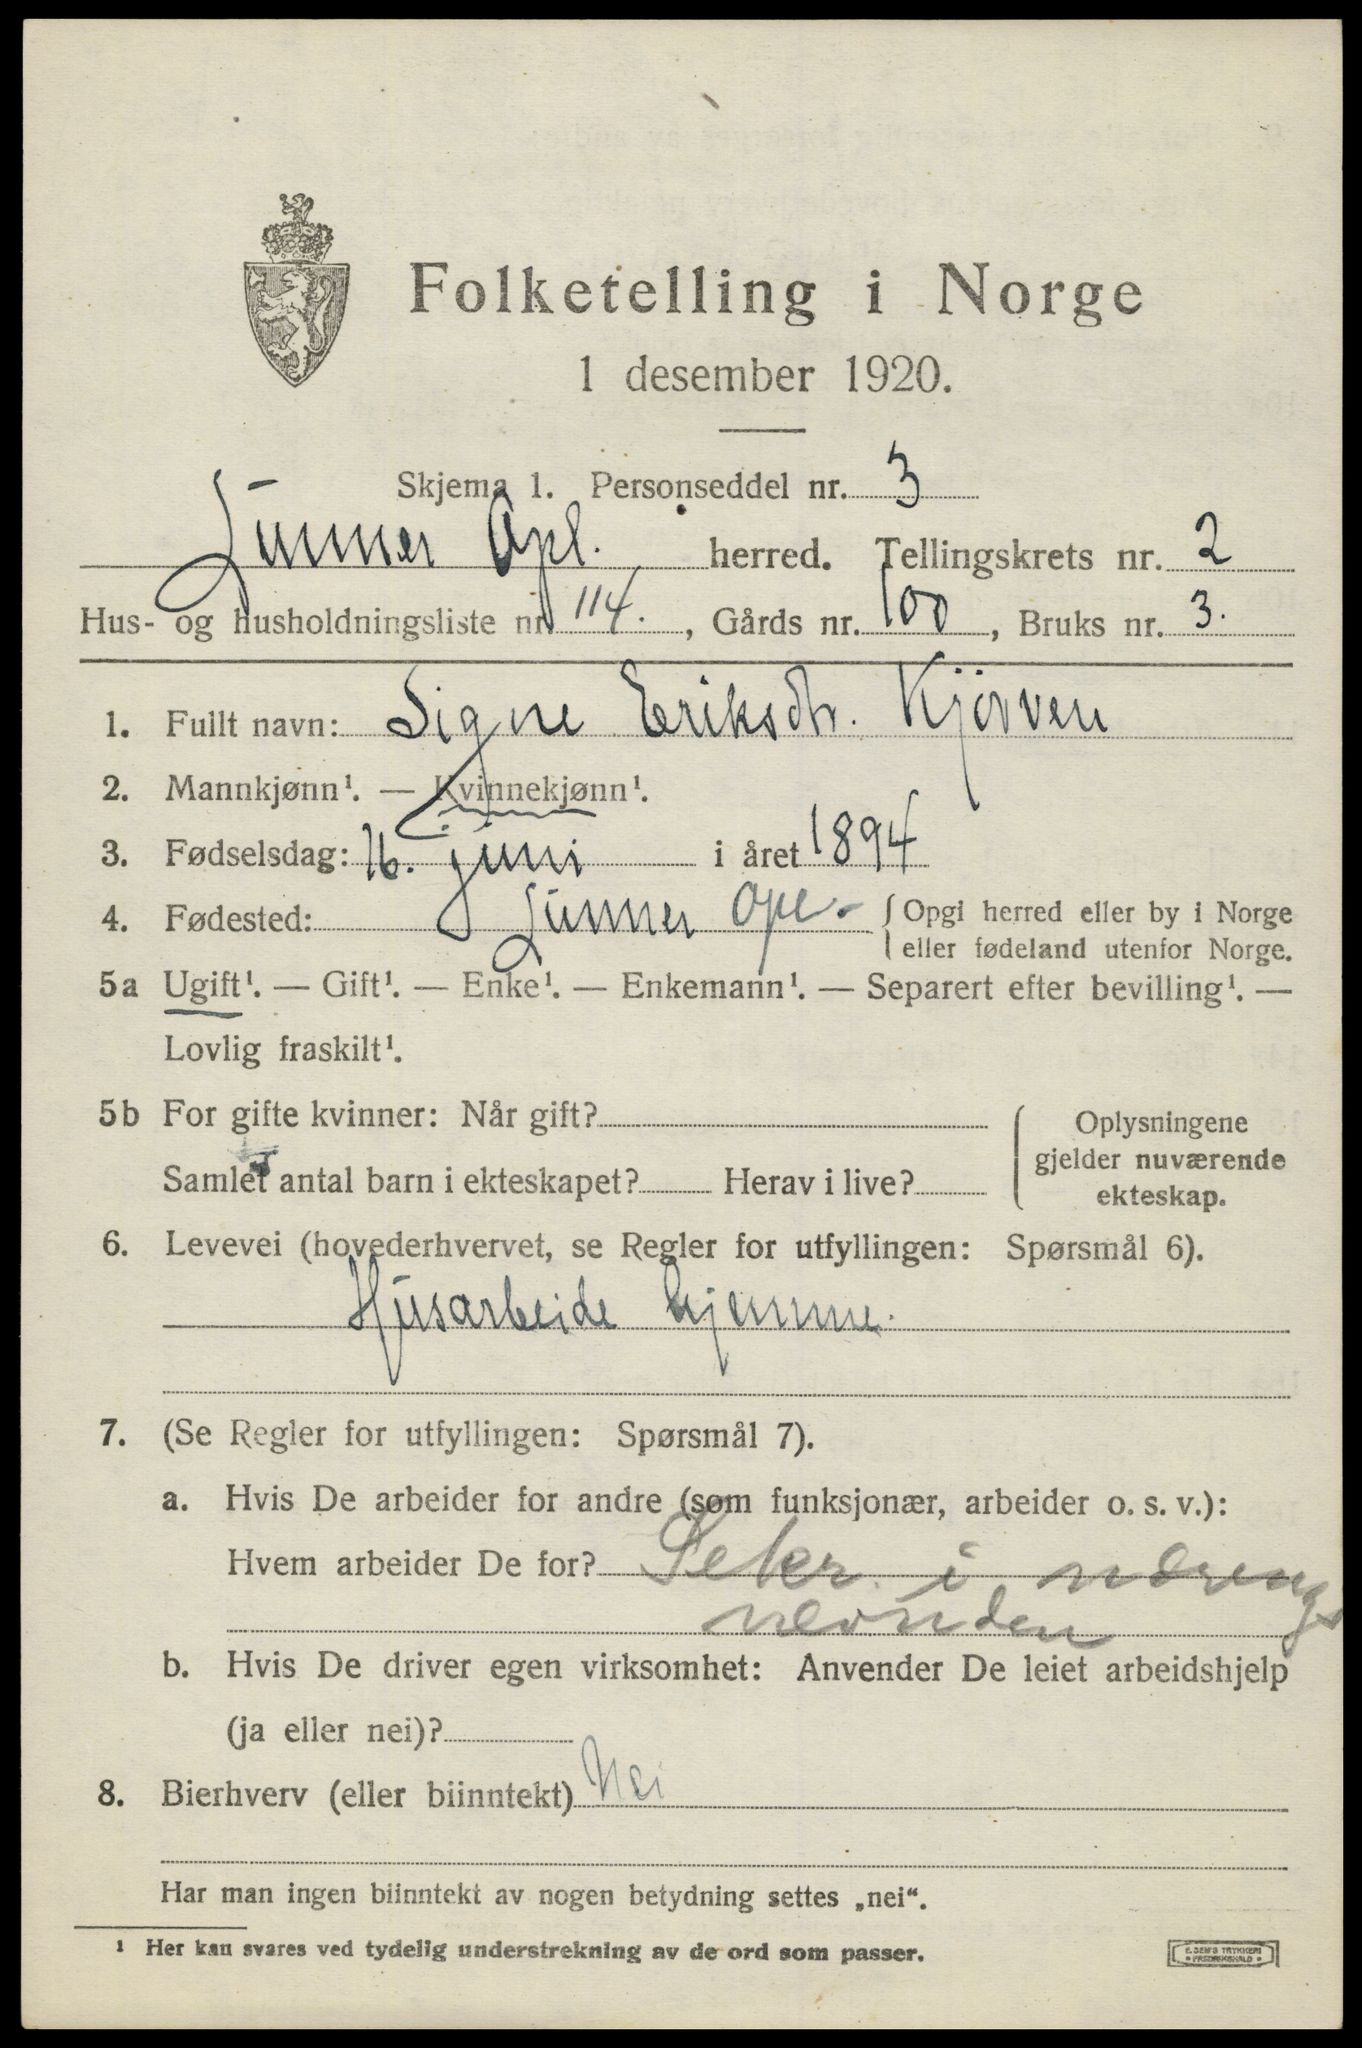 Folketelling i Norge
1 desember 1920.
Skjema 1. Personseddel nr. 3
Lunner Opl. herred. Tellingskrets nr. 2
Hus- og husholdningsliste nr. 114., Gårds nr. 100, Bruks nr. 3.
1. Fullt navn: Signe Eriksdtr. Kjørven
2. Mannkjønn¹. — Kvinnekjønn¹.
3. Fødselsdag: 16. juni i året 1894
4. Fødested: Lunner Opl. { Opgi herred eller by i Norge
eller fødeland utenfor Norge.
5a Ugift¹. — Gift¹. — Enke¹. — Enkemann¹. — Separert efter bevilling¹. —
Lovlig fraskilt¹.
5b For gifte kvinner: Når gift?
Samlet antal barn i ekteskapet? Herav i live?
Oplysningene
gjelder nuværende
ekteskap.
6. Levevei (hovederhvervet, se Regler for utfyllingen: Spørsmål 6).
Husarbeide hjemme.
7. (Se Regler for utfyllingen: Spørsmål 7).
a. Hvis De arbeider for andre (som funksjonær, arbeider o. s. v.):
Hvem arbeider De for? Sekr. i nærings
nevnden
b. Hvis De driver egen virksomhet: Anvender De leiet arbeidshjelp
(ja eller nei)?
8. Bierhverv (eller biinntekt) Nei
Har man ingen biinntekt av nogen betydning settes „nei“.
¹ Her kan svares ved tydelig understrekning av de ord som passer.
E. SEM'S TRYKKERI
• FREDRIKSHALD •